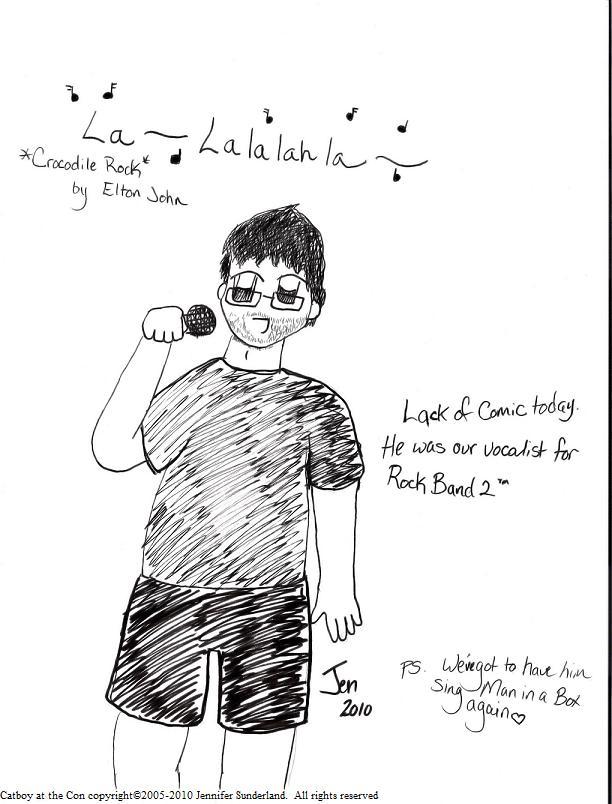 La ~ La la la lah la ~
*Crocodile Rock*
by Elton John
Lack of Comic today.
He was our vocalist for
Rock Band 2™
Jen
2010
PS. We've got to have him
Sing Man in a Box
again♡
Catboy at the Con copyright©2005-2010 Jennifer Sunderland. All rights reserved